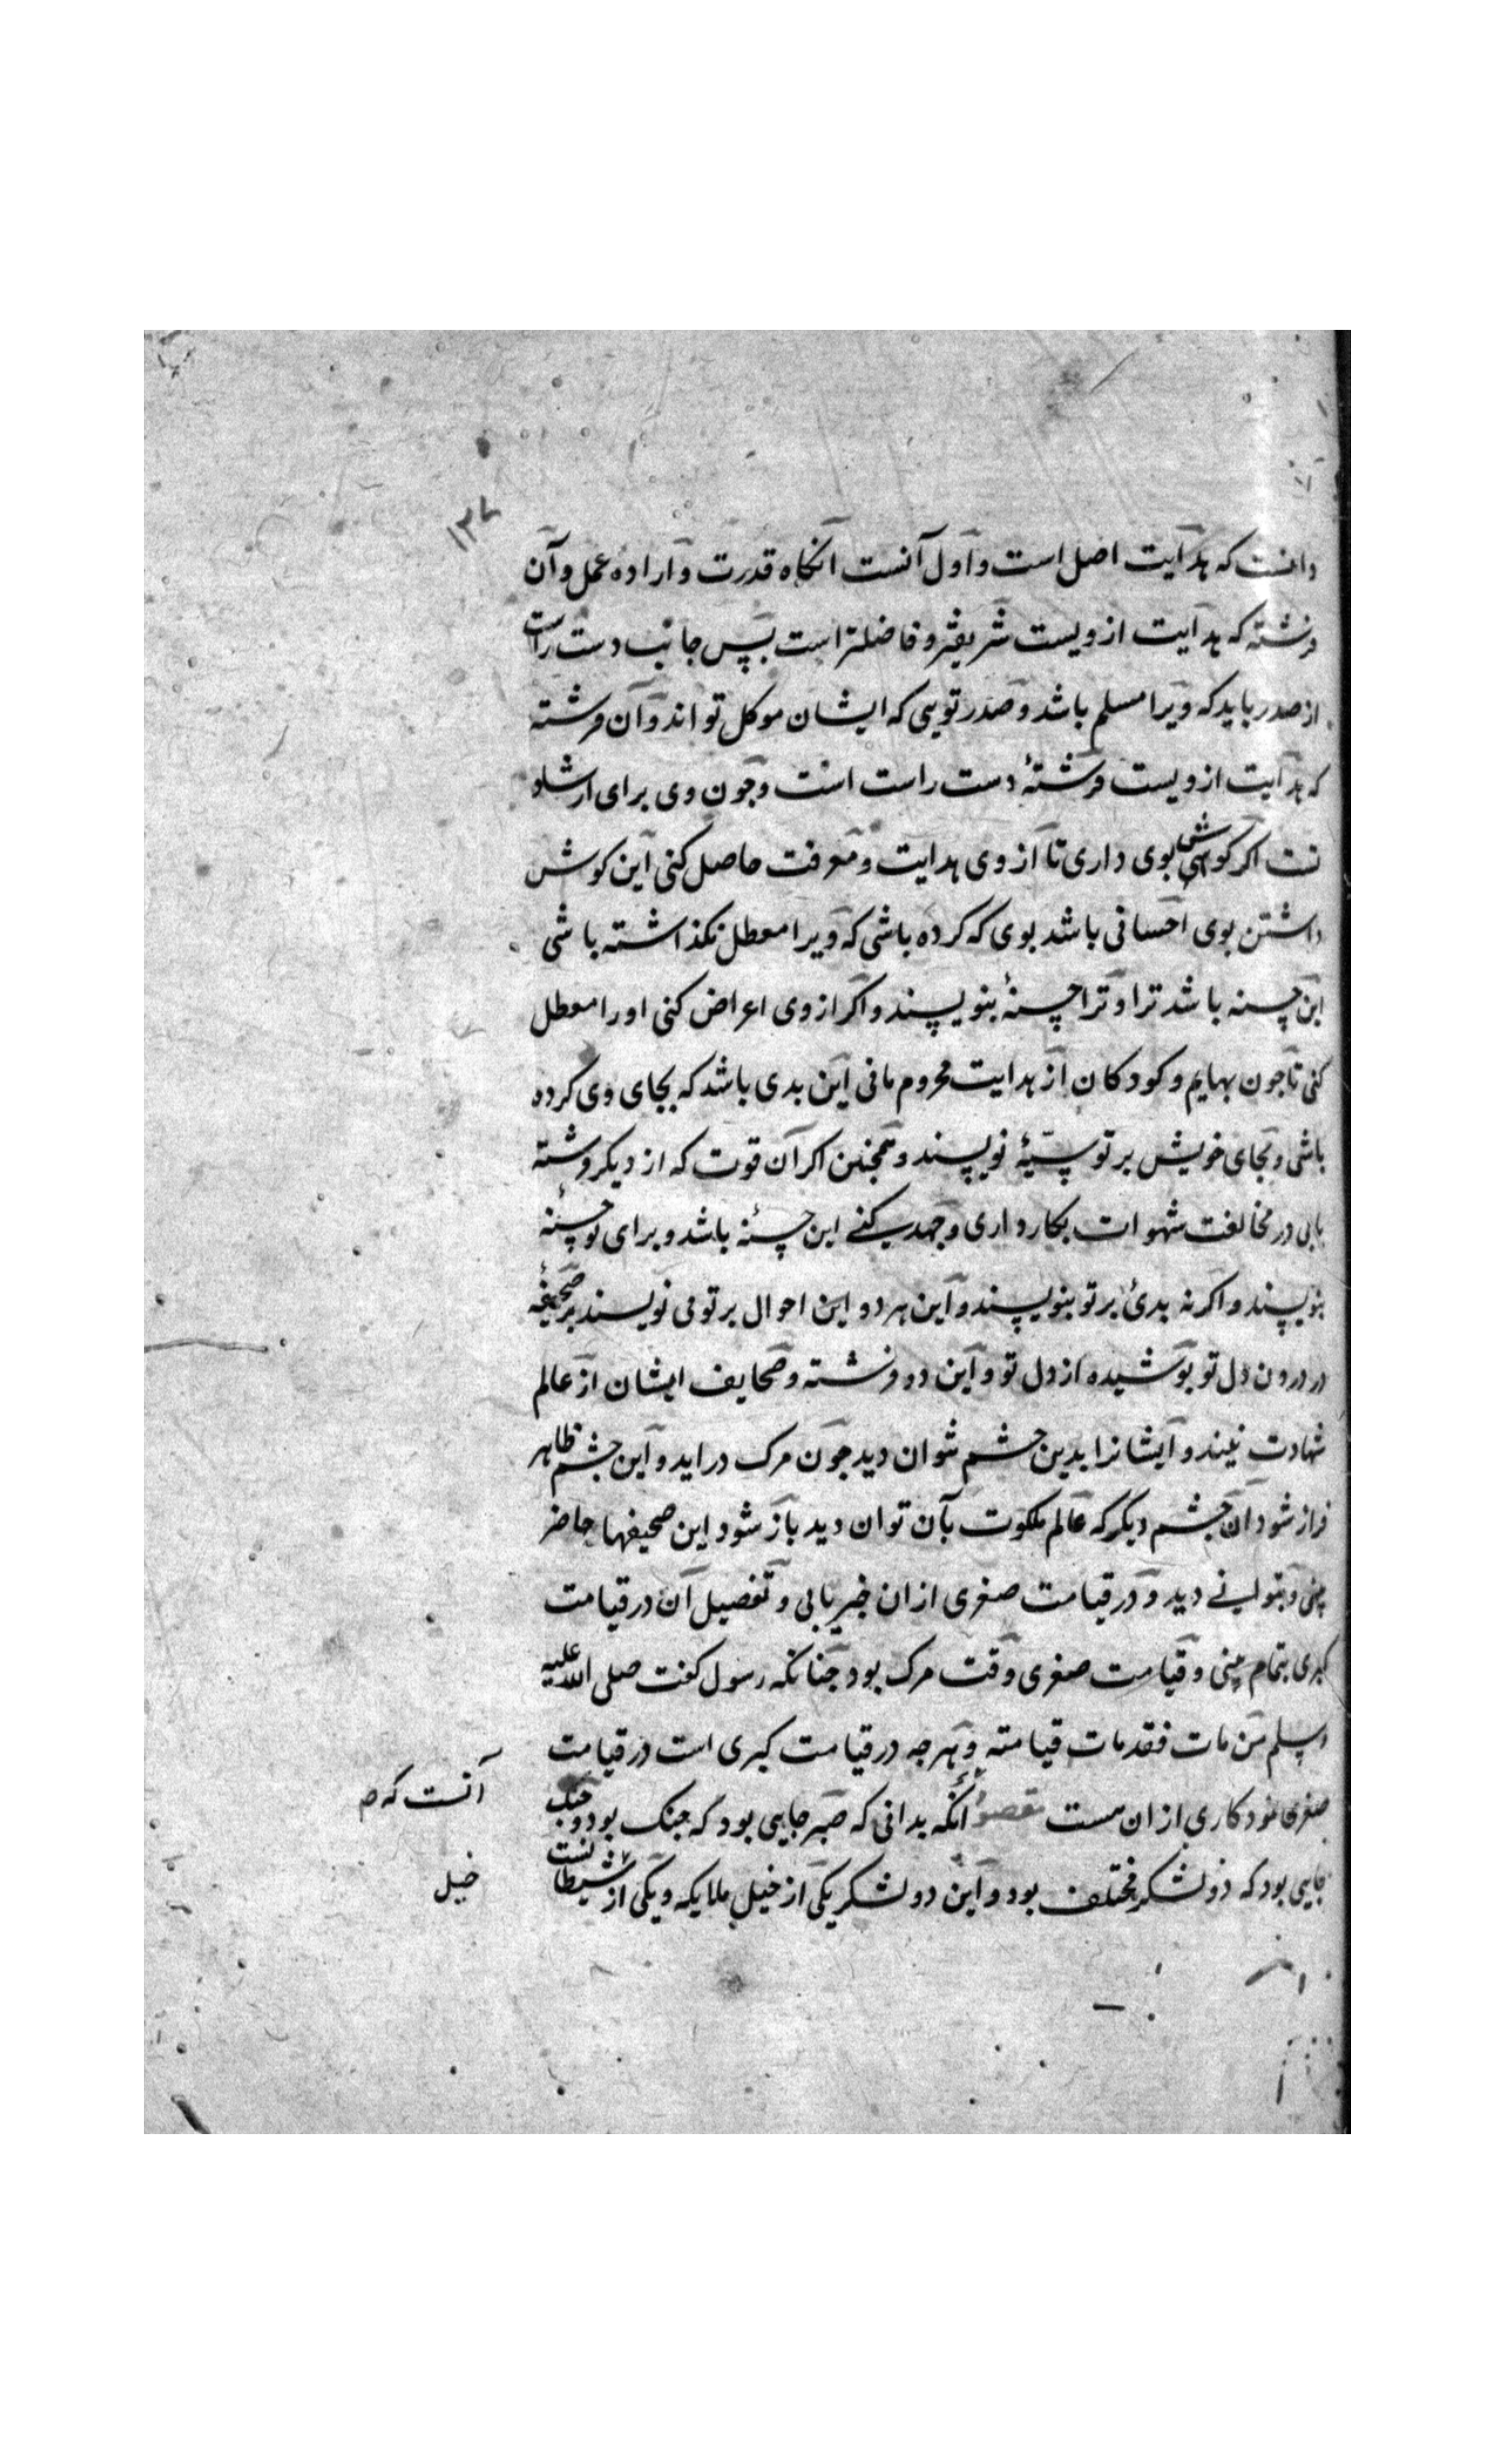 ۱۳۷
دانست که هدایت اصل است و اول آنست آنکاه قدرت و اراده عمل و آن
فرشته که هدایت ازویست شریفتر و فاضلتر است پس جانب دست راست
از صدر باید که ویرا مسلم باشد و صدر تویی که ایشان موکل تو اند و آن فرشته
که هدایت ازویست فرشتهٔ دست راست است و جون وی برای ارشاد
تست اکر کوش بوی داری تا از وی هدایت و معرفت حاصل کنی این کوش
داشتن بوی احسانی باشد بوی که کرده باشی که ویرا معطل نکذاشته باشی
این حسنه باشد ترا و ترا حسنهٔ بنویسند و اکر از وی اعراض کنی او را معطل
کنی تا جون بهایم و کودکان از هدایت محروم مانی این بدی باشد که بجای وی کرده
باشی و بجای خویش بر تو سیّئهٔ نویسند و همجنین اکر آن قوت که از دیکر فرشته
یابی در مخالفت شهوات بکار داری و جهد کنی این حسنه باشد و برای تو حسنهٔ
بنویسند و اکر نه بدیٔ بر تو بنویسند و این هر دو این احوال بر تو می نویسند بر صحیفهٔ
در درون دل تو بوشیده از دل تو و این دو فرشته و صحایف ایشان از عالم
شهادت نیند و ایشانرا بدین جشم نتوان دید جون مرک دراید و این جشم ظاهر
فراز شود آن جشم دیکر که عالم ملکوت بآن توان دید باز شود این صحیفها حاضر
بینی و بتوانی دید و در قیامت صغری ازان خبر یابی و تفصیل آن در قیامت
کبری بتمام بینی و قیامت صغری وقت مرک بود جنانکه رسول کفت صلی الله علیه
وسلم من مات فقد مات قیامته و هرجه در قیامت کبری است در قیامت
صغری نمودکاری ازان هست مقصود آنکه بدانی که صبر جایی بود که جنک بود و جنک
آنست که م
جایی بود که دو لشکر مختلف بود و این دو لشکر یکی از خیل ملایکه و یکی از شیطانست
خیل